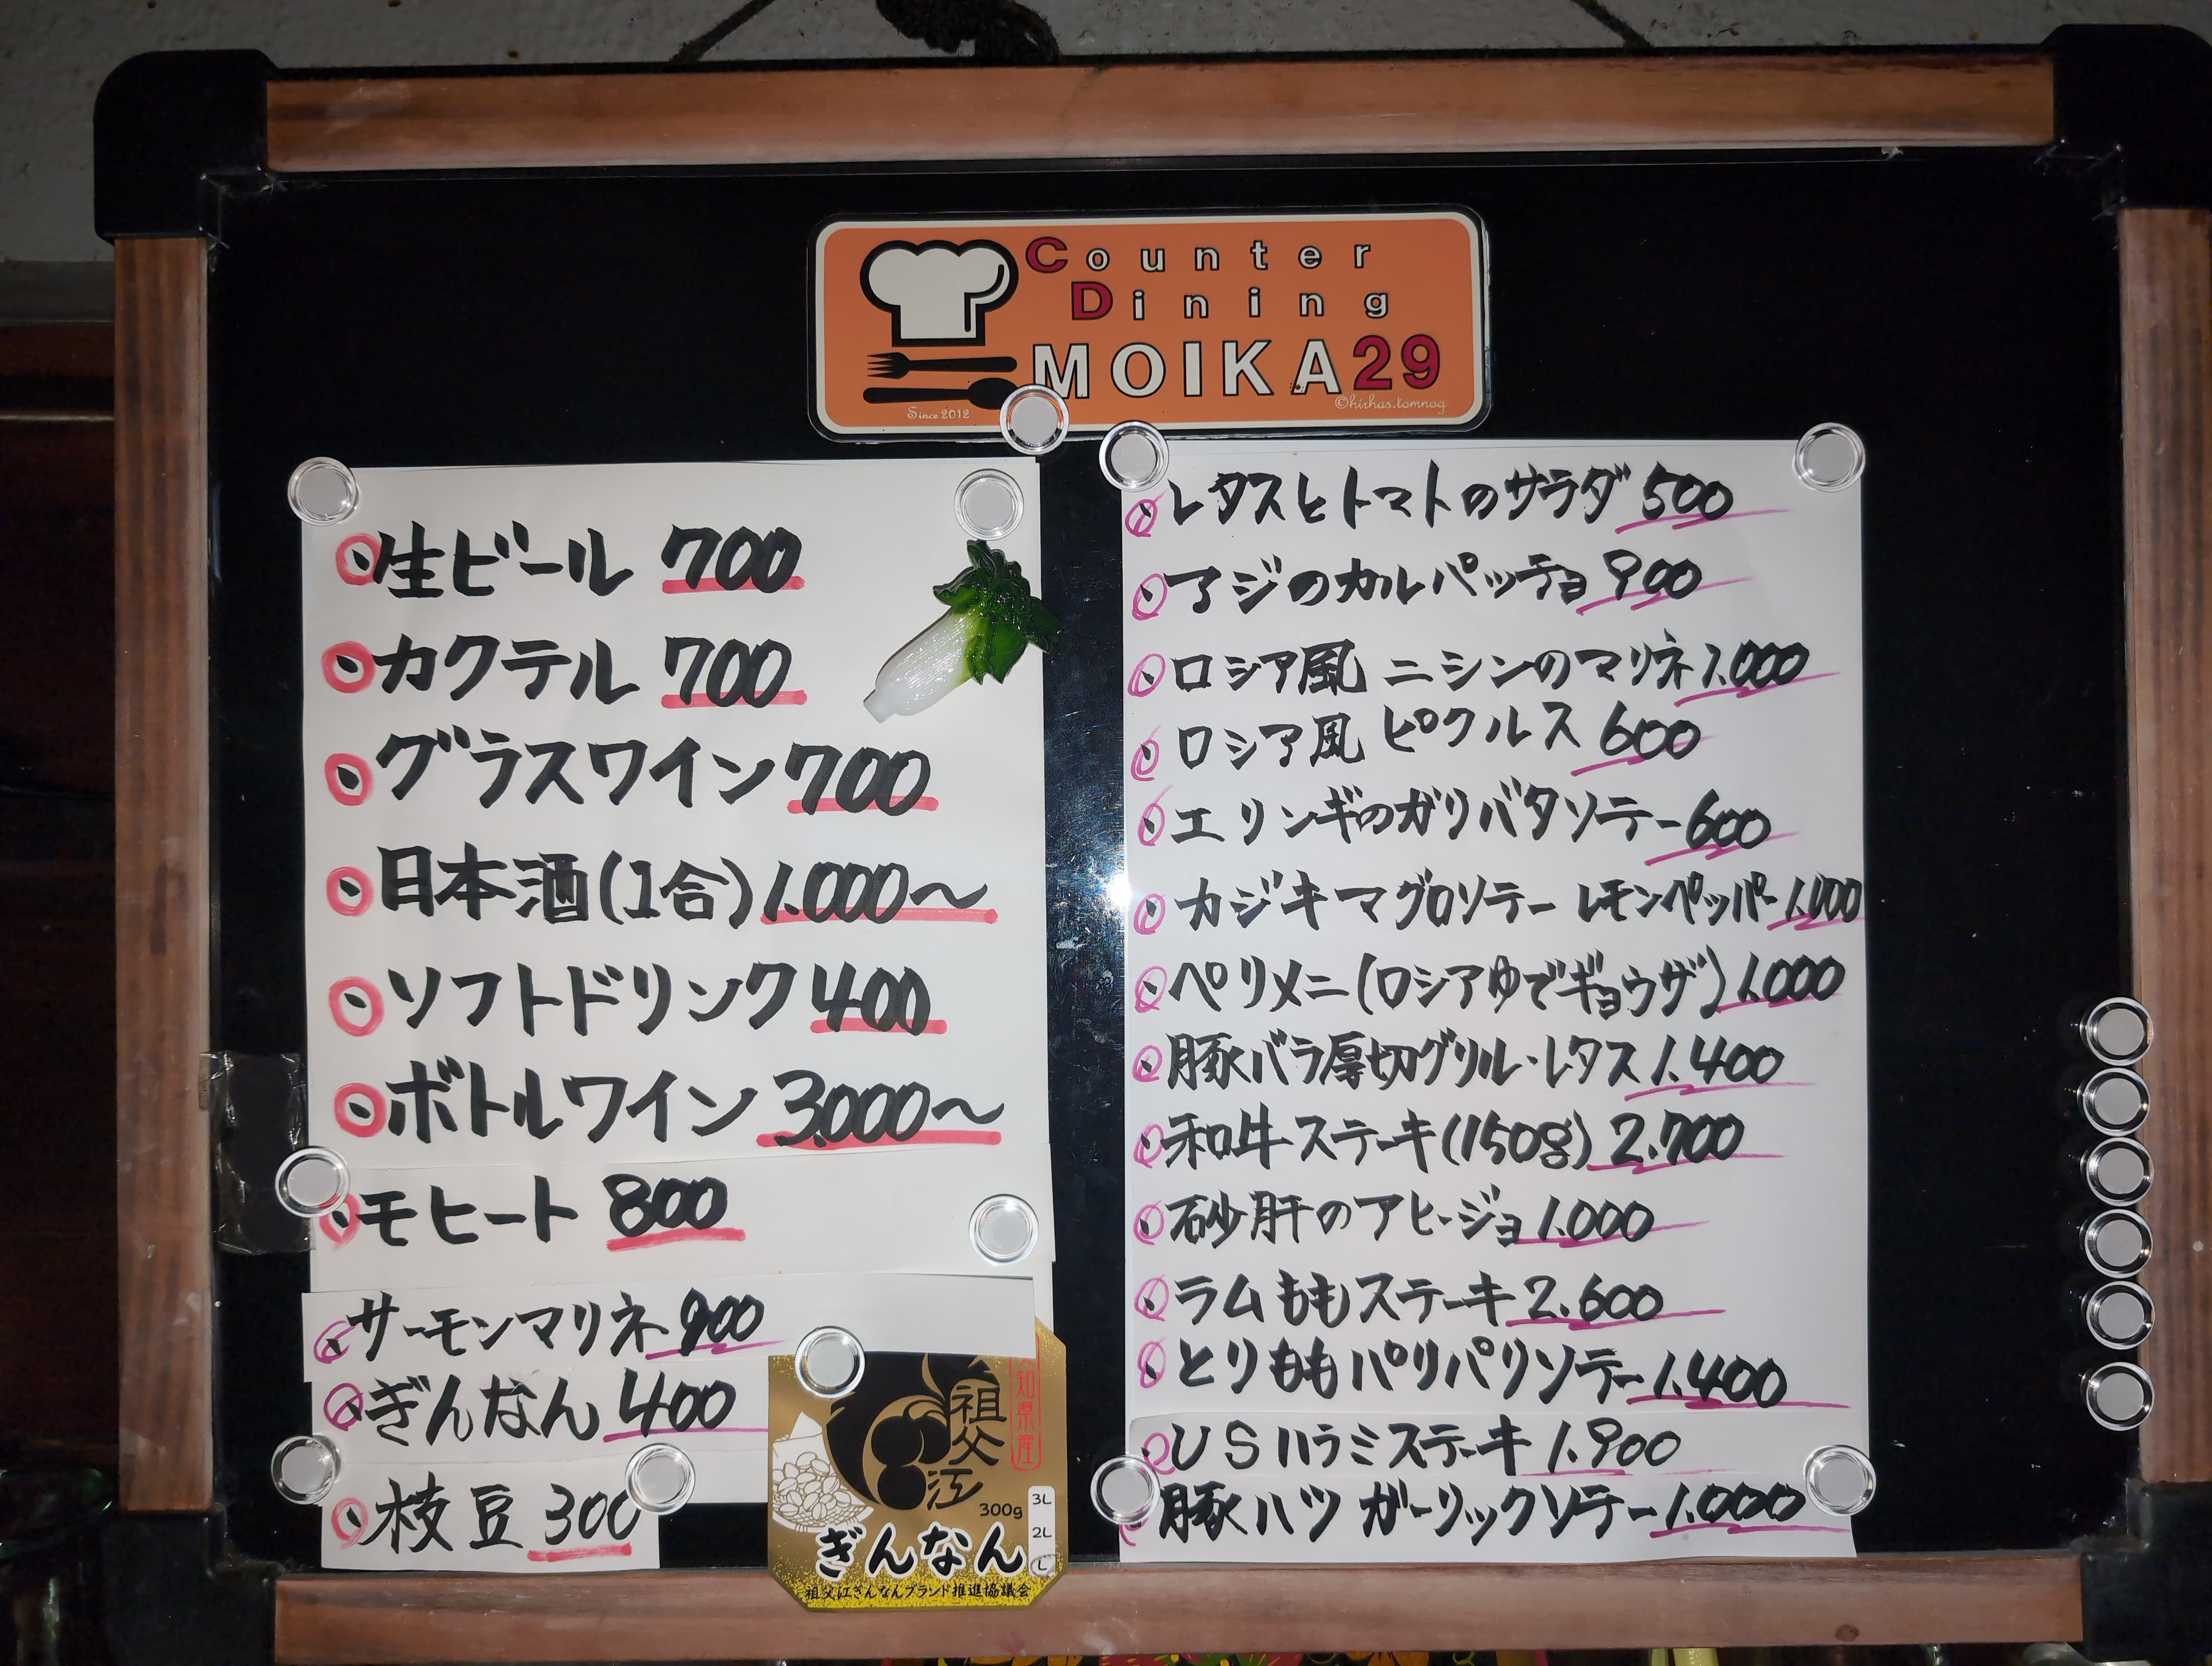 Counter
Dining
MOIKA29
Since 2012
©hirhas.tamnag
生ビール 700
カクテル 700
グラスワイン 700
日本酒(1合) 1.000〜
ソフトドリンク 400
ボトルワイン 3.000〜
モヒート 800
サーモンマリネ 900
ぎんなん 400
枝豆 300
知県産
祖父江
300g
3L
2L
L
ぎんなん
祖父江ぎんなんブランド推進協議会
レタスとトマトのサラダ 500
アジのカルパッチョ 900
ロシア風 ニシンのマリネ 1.000
ロシア風 ピクルス 600
エリンギのガリバタソテー 600
カジキマグロソテー レモンペッパー 1.000
ペリメニ(ロシアゆでギョウザ) 1.000
豚バラ厚切グリル・レタス 1.400
和牛ステーキ(150g) 2.700
砂肝のアヒージョ 1.000
ラムももステーキ 2.600
とりももパリパリソテー 1.400
US ハラミステーキ 1.900
豚ハツ ガーリックソテー 1.000